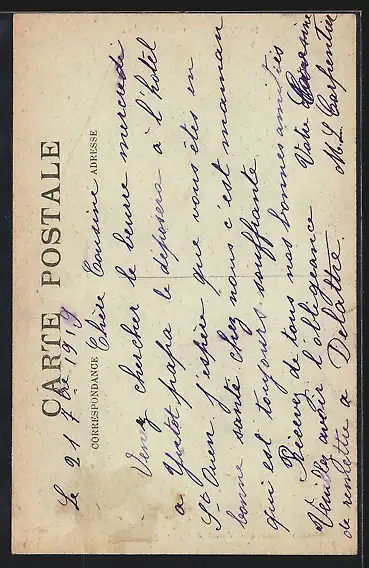 CARTE POSTALE
CORRESPONDANCE
ADRESSE
Le 21 7bre 1919
Chère Cousine
Venez chercher le beurre mercredi
a Yvetot papa le deposera à l'hotel
St Ouen j'espère que vous êtes en
bonne santé chez nous c'est maman
qui est toujours souffrante.
Recevez de tous nos bonnes amitiés
Votre Cousine
M L Carpentier
Veuillez avoir l'obligeance
de remettre a Delattre.